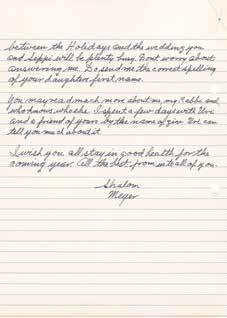 between the Holidays and the wedding you
and Seppi will be plenty busy. Dont worry about
answering me. Do send me the correct spelling
of your daughters first name.
You may read much more about me, my Rabbi and
who knows who else. I spent a few days with Uri
and a friend of yours by the name of Give. Uri can
tell you much about it.
I wish you all stay in good health for the
coming year. All the best from me to all of you.
Shalom
Meyer